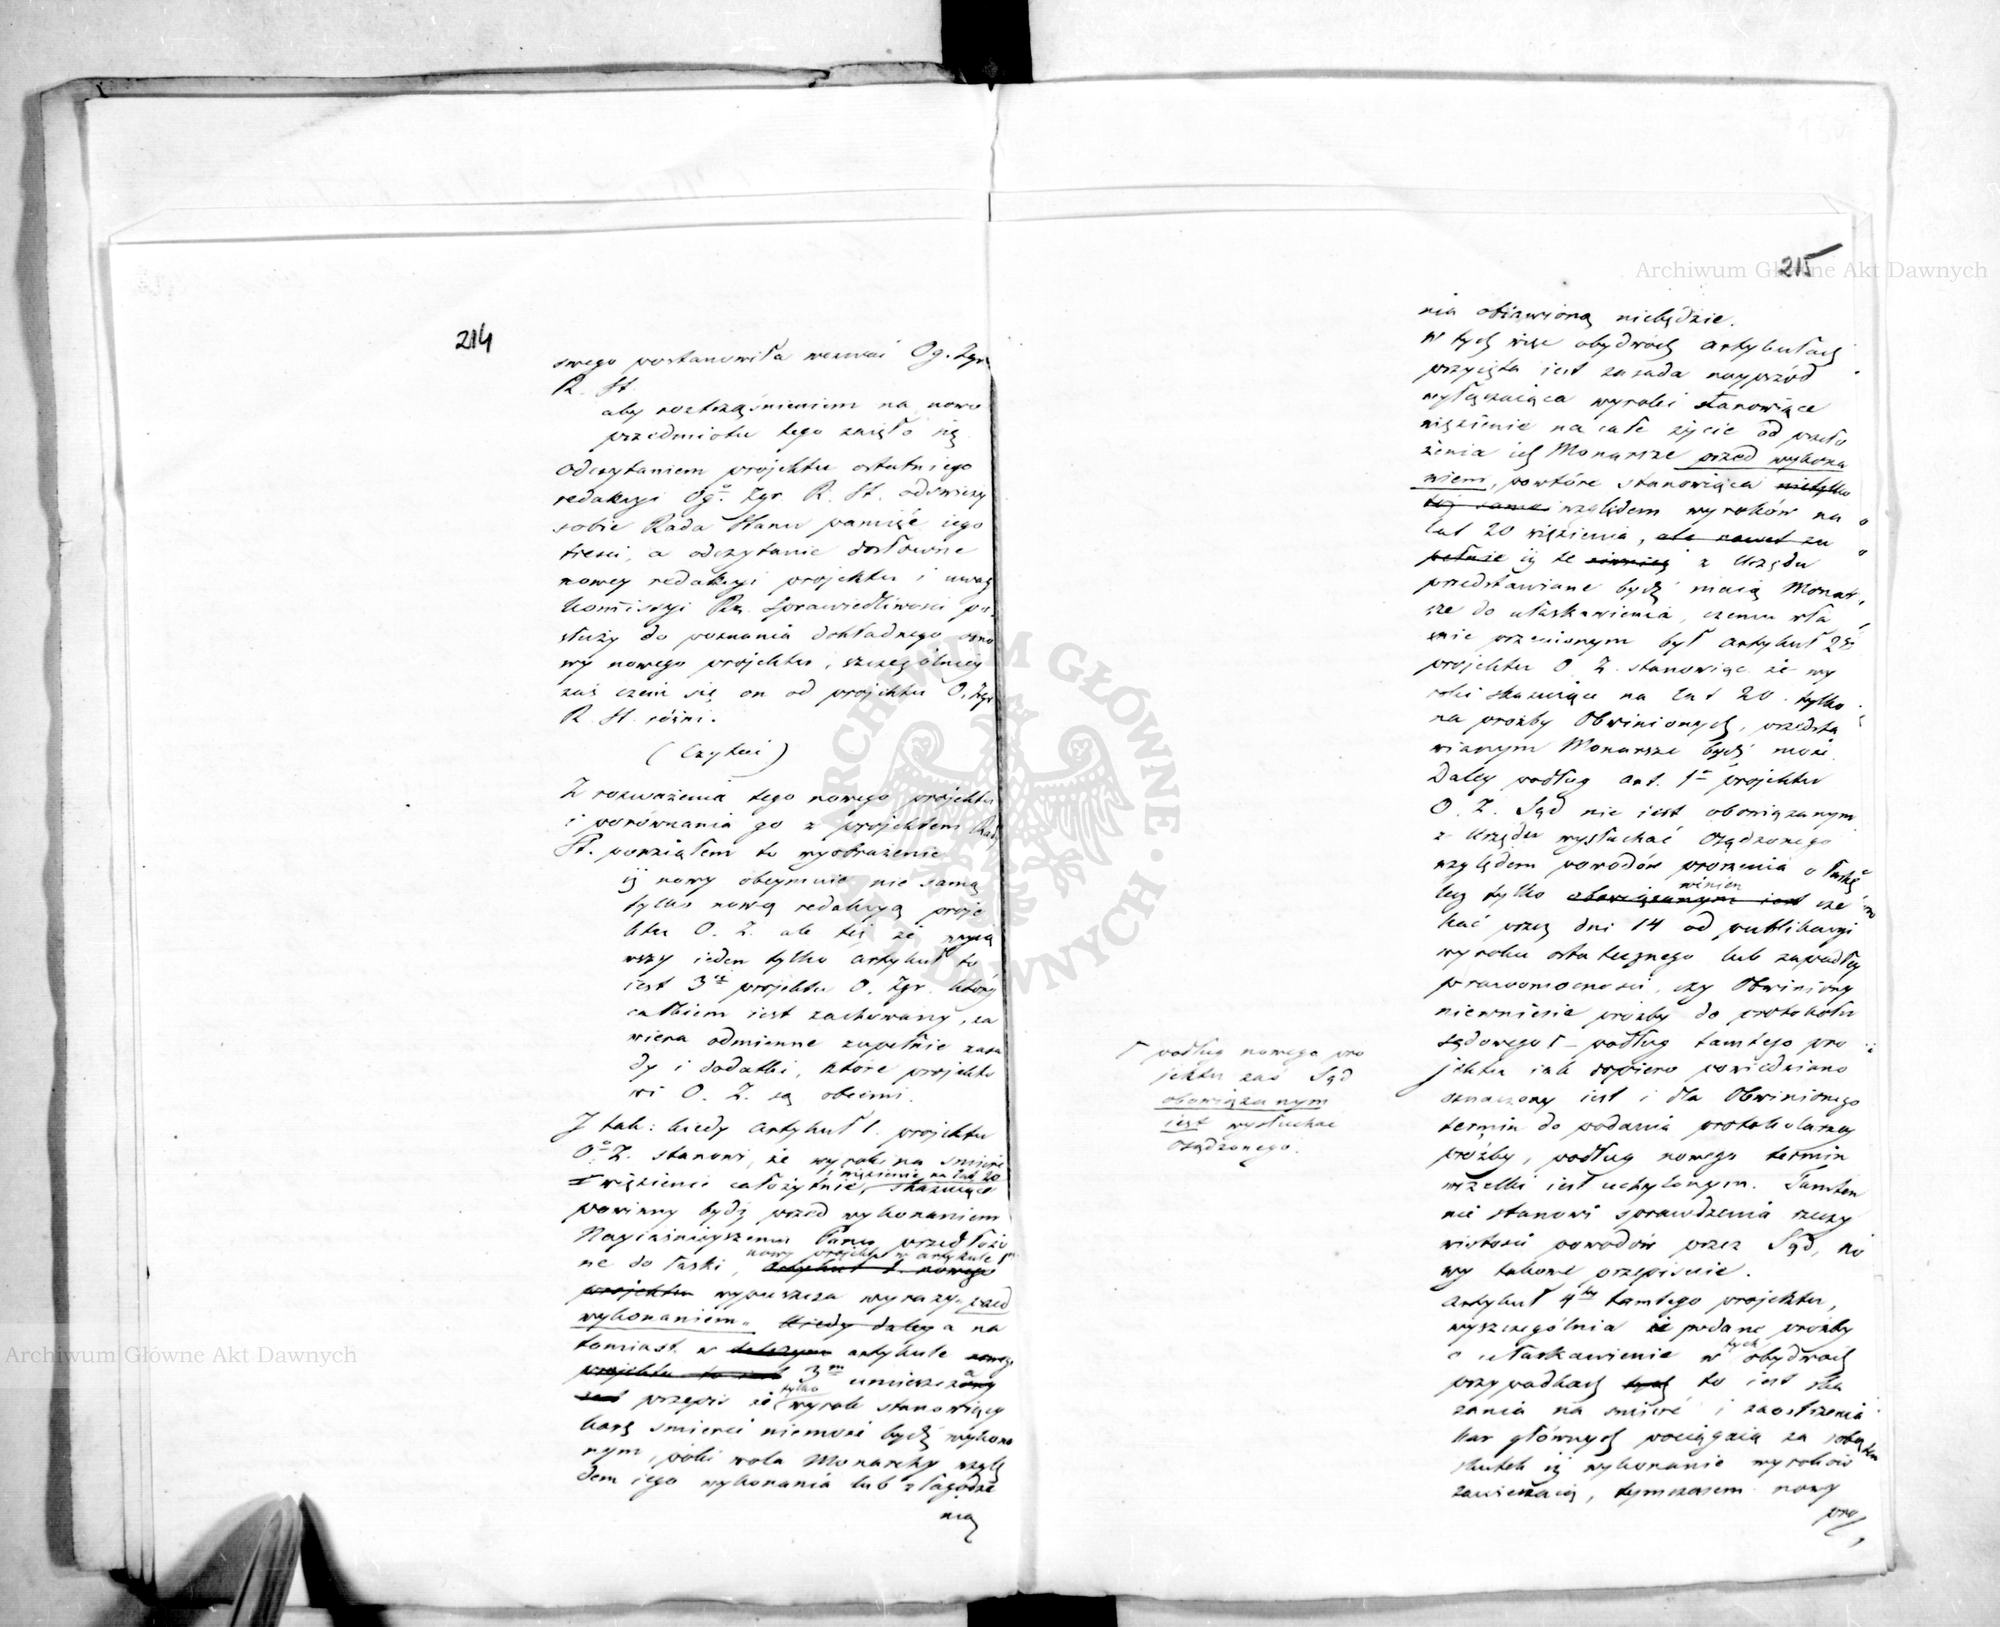 214
swego postanowiła wezwać Og. Zgr.
R. St.
aby roztrząśnieniem na nowo
przedmiotu tego zaięło się
Odczytaniem projektu ostatniego
redakcyi Ogo. Zgr. R. St. odświeży
sobie Rada Stanu pamięć iego
treści, a odczytanie dosłowne
nowey redakcyi projektu i uwag
Kommissyi Rz. Sprawiedliwości po
służy do poznania dokładnego osno
wy nowego projektu, szczególniey
zaś czem się on od projektu O. Zgr.
R. St. różni.
(Czytać)
Z rozważenia tego nowego projektu
i porównania go z projektem Rady
St. powziąłem to wyobrażenie
iż nowy obeymuie nie samą
tylko nową redakcyą proje
ktu O. Z. ale też że wyią
wszy ieden tylko artykuł to
iest 3ci projektu O. Zgr. który
całkiem iest zachowany, za
wiera odmienne zupełnie zasa
dy i dodatki, które projekto
wi O. Z. są obcemi.
I tak: kiedy artykuł 1. projektu
Oo. Z. stanowi, że wyroki na śmierć
więzienie całożytnie, więzienie na lat 20 skazuiące
powinny bydź przed wykonaniem
Nayiaśnieyszemu Panu przedłożo
ne do łaski, nowy projekt w artykule 1m
artykuł 1. nowego
projektu wypuszcza wyrazy "przed
wykonaniem". Kiedy daley a na
tomiast w dalszym artykule nowego
projektu to iest 3m umieszcza
zaś przepis że tylko wyrok stanowiący
karę śmierci niemoże bydź wykona
nym, póki wola Monarchy wzglę
dem iego wykonania lub złagodze
nia
215
nia obiawioną niebędzie.
W tych więc obydwóch artykułach
przyięta iest zasada nayprzód
wyłączaiąca wyroki stanowiące
więzienie na całe życie od przeło
żenia ich Monarsze przed wykona
niem, powtóre stanowiąca nietylko
tęż samą względem wyroków na
lat 20 więzienia, ale nawet zu
pełnie iż te z Urzędu
przedstawiane bydź maią Monar
sze do ułaskawienia, czemu wła
śnie przeciwnym był artykuł 2gi
projektu O. Z. stanowiąc że wy
roki skazuiące na lat 20. tylko
na prożby Obwinionych, przedsta
wianym Monarsze bydź może.
Daley podług art. 1o projektu
O. Z. Sąd nie iest obowiązanym
z Urzędu wysłuchać Osądzonego
względem powodów proszenia o łaskę
lecz tylko obowiązanym iest winien cze
kać przez dni 14 od publikacyi
wyroku ostatecznego lub zapadłey
prawomocności, czy Obwiniony
niewniesie prożby do protokołu
sądowego Γ – podług tamtego pro
jektu iak dopiero powiedziano
oznaczony iest i dla Obwinionego
termin do podania protokularney
próżby, podług nowego termin
wszelki iest uchylonym. Tamten
nie stanowi sprawdzenia rzeczy
wistości powodów przez Sąd, no
wy takowe przepisuie.
Artykuł 4ty tamtego projektu,
wyszczególnia iż podane prożby
o ułaskawienie w tych obydwóch
przypadkach tych to iest ska
zania na śmierć i zaostrzenia
kar głównych pociągaią za sobą ten
skutek iż wykonanie wyroków
zawieszaią, tymczasem nowy
pro
Γ podług nowego pro
jektu zaś Sąd
obowiązanym
iest wysłuchać
Osądzonego.
Archiwum Główne Akt Dawnych
Archiwum Główne Akt Dawnych
ARCHIWUM GŁÓWNE AKT DAWNYCH